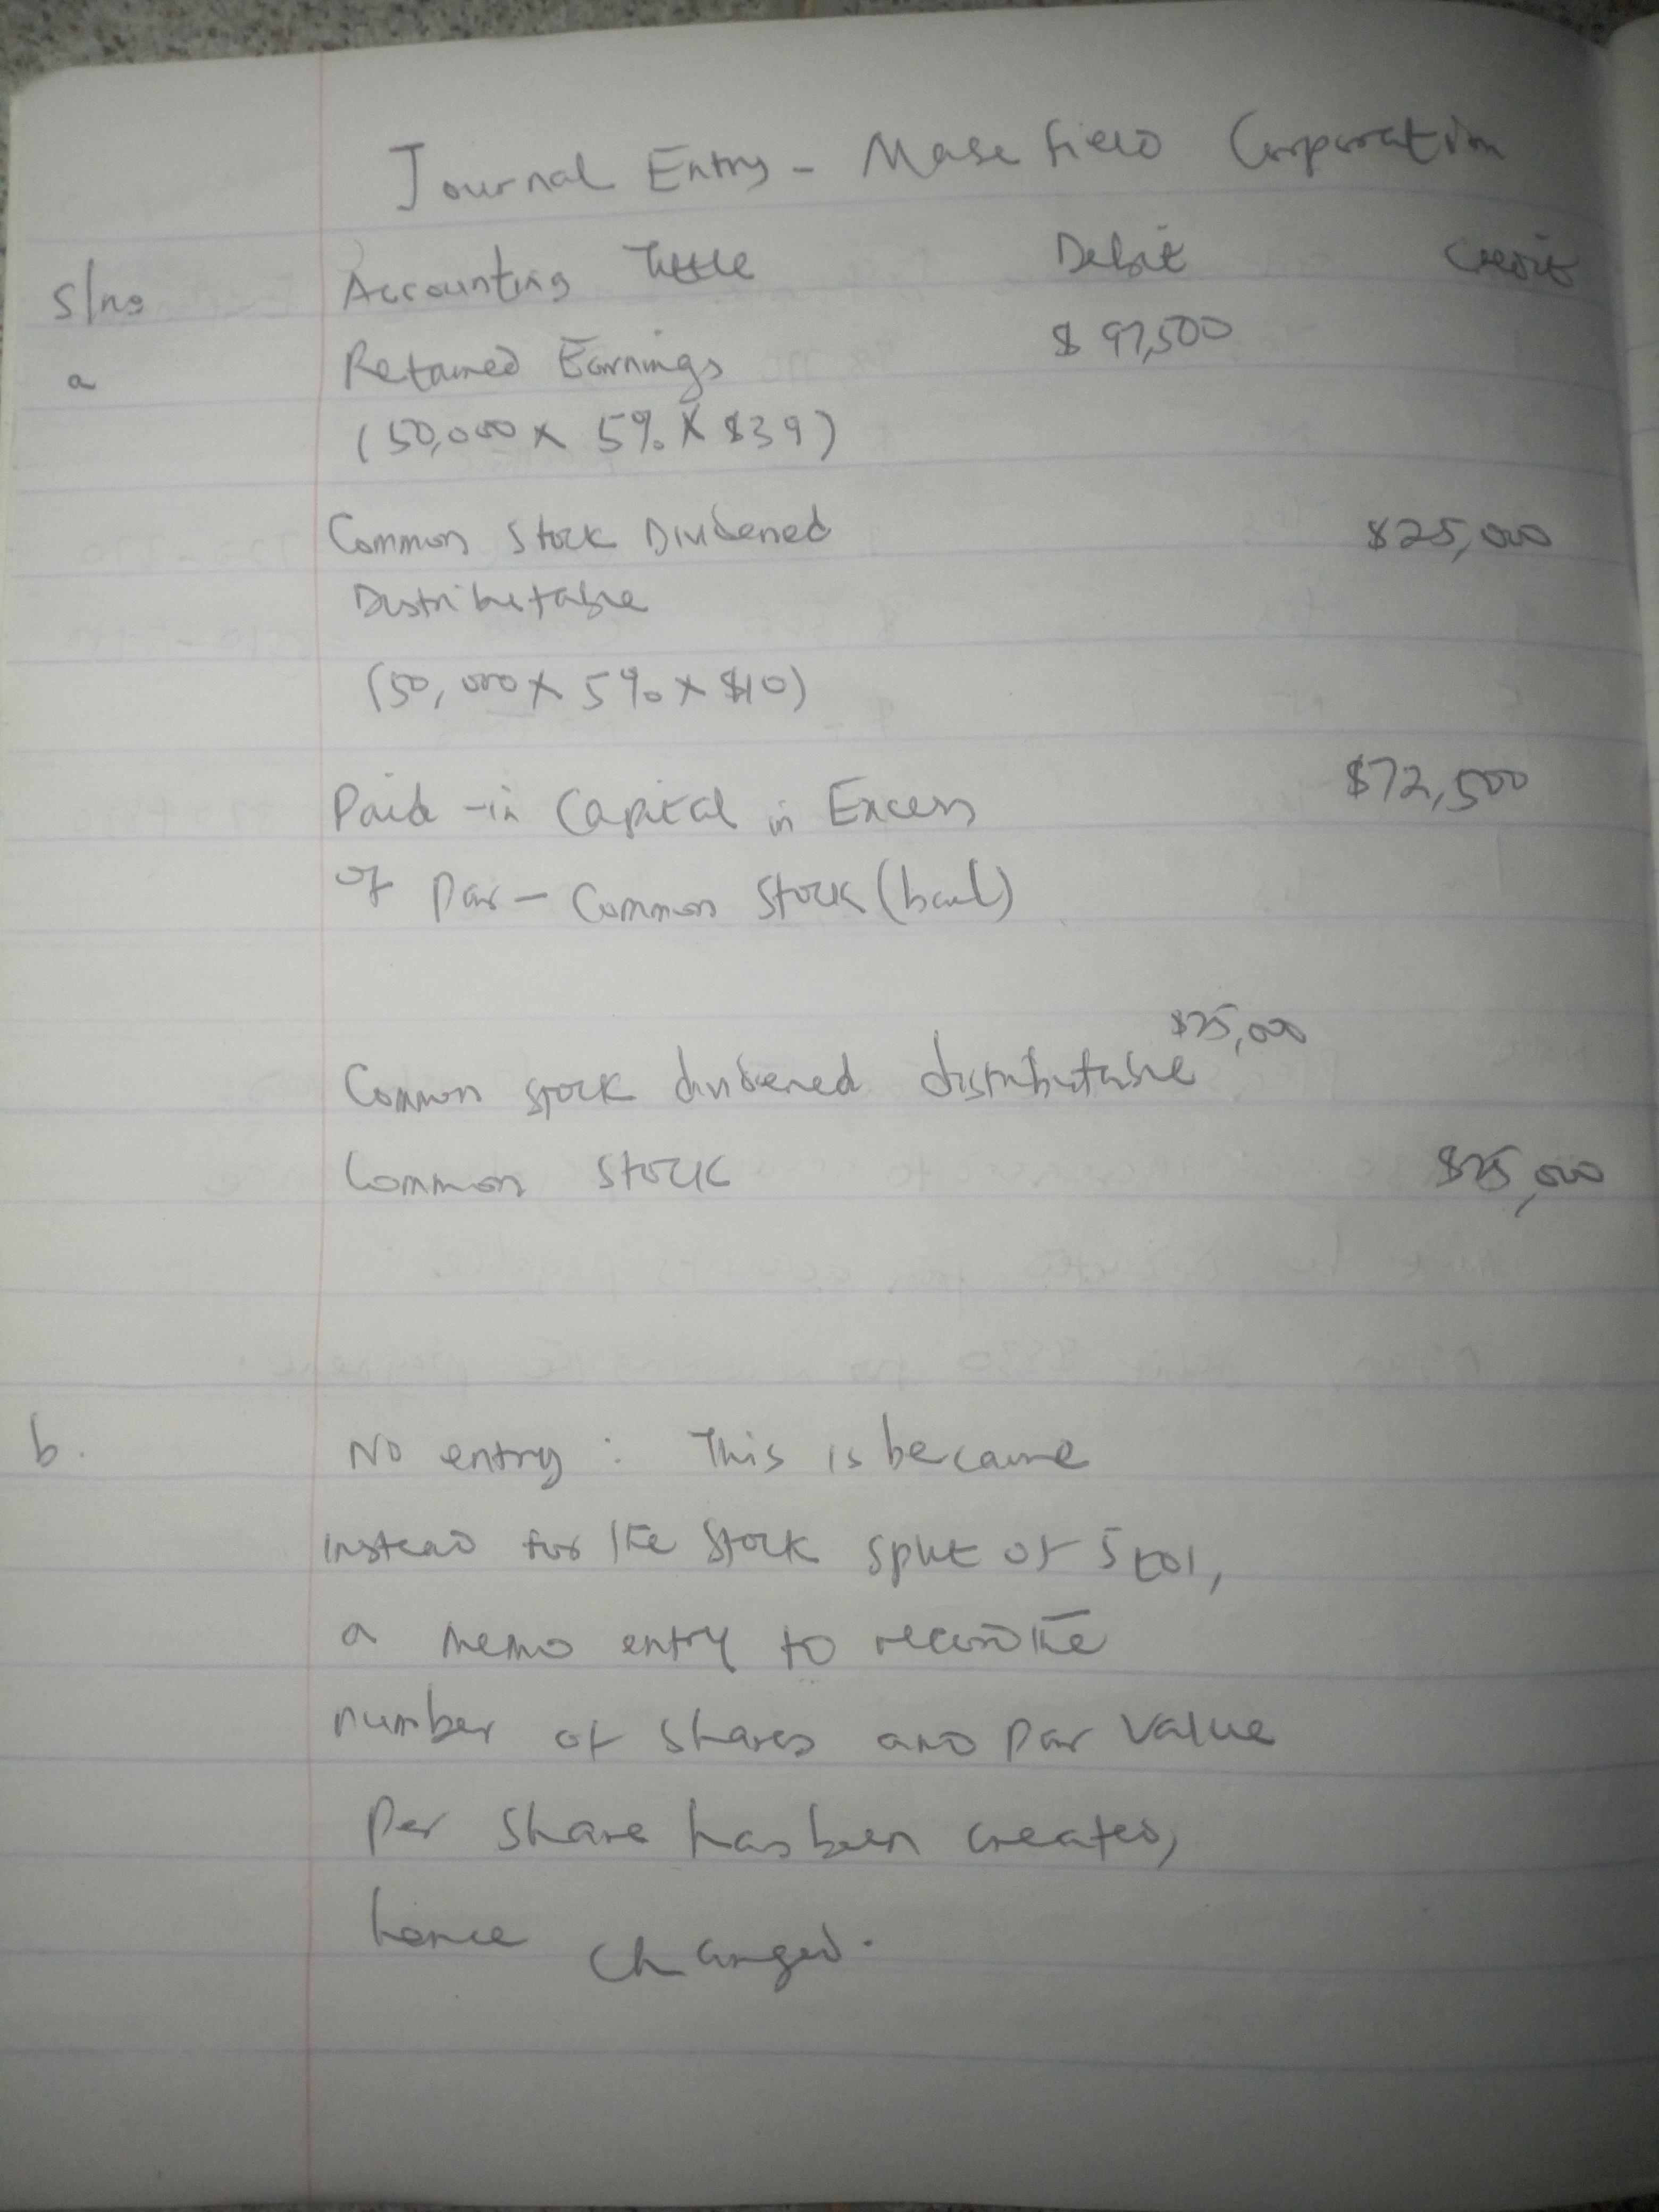 Journal Entry - Masefield Corporation
S/no Accounting Tittle Debit Credit
a Retained Earnings $ 97,500
(50,000 x 5% x $39)
Common Stock Dividened $25,000
Distributable
(50,000 x 5% x $10)
Paid-in Capital in Excess $72,500
of Par - Common Stock (bal)
Common stock dividened distributable $25,000
Common Stock $25,000
b. No entry : This is because
instead for the Stock split of 5 to 1,
a memo entry to record the
number of shares and par value
per share has been created,
hence changed.